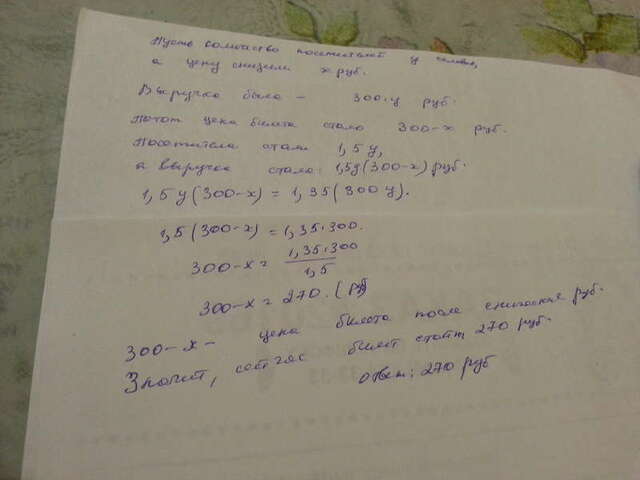 Пусть количество посетителей y человек,
а цену снизили x руб.
Выручка была - 300·y руб.
Потом цена билета стала 300-x руб.
Посетителей стало 1,5y,
а выручка стала: 1,5y(300-x) руб.
1,5y(300-x) = 1,35(300y).
1,5(300-x) = 1,35·300.
300-x = 1,35·300
1,5
300-x = 270. (руб)
300-x - цена билета после снижения руб.
Значит, сейчас билет стоит 270 руб.
ответ: 270 руб